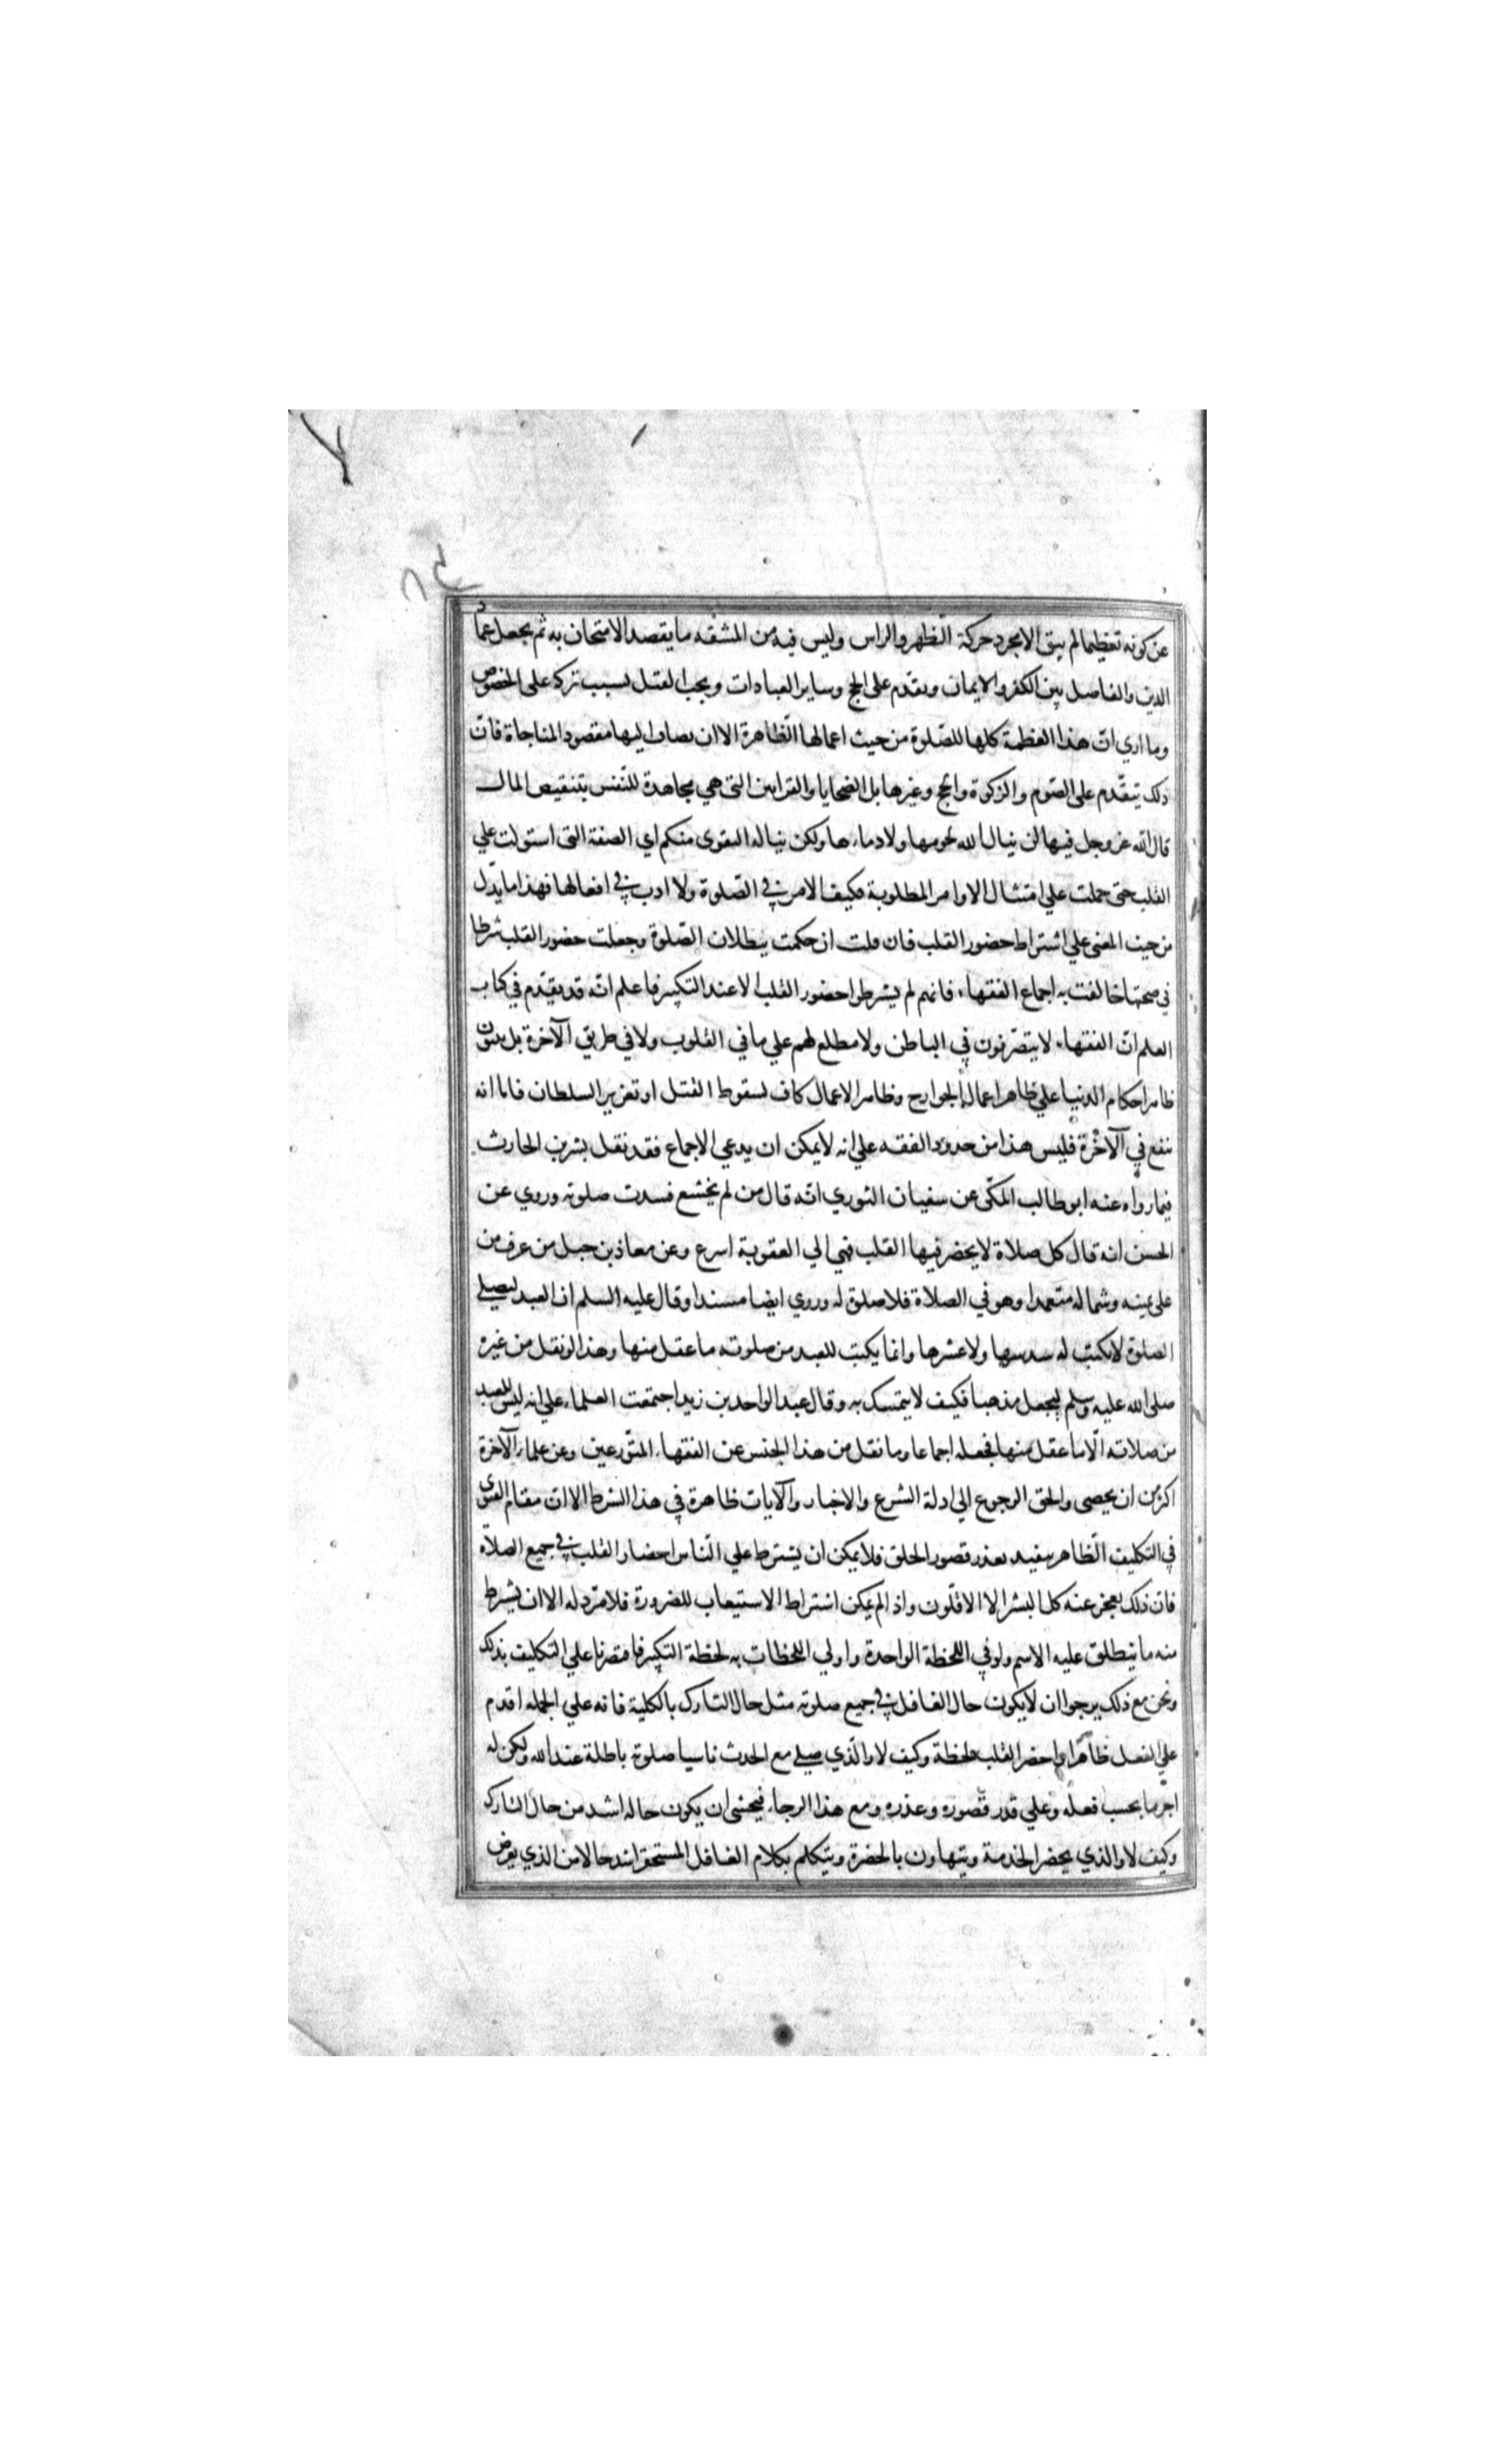 عن كونه تعظيما لم يبق الا مجرد حركة الظهر والراس وليس فيه من المشقه ما يقصد الامتحان به ثم يجعل عماد
الدين والفاصل بين الكفر والايمان ويقدم على الحج وساير العبادات ويجب القتل بسبب تركه على الخصوص
وما اري ان هذا العظمة كلها للصلوة من حيث اعمالها الظاهرة الا ان يضاف اليها مقصود المناجاة فان
ذلك يتقدم على الصوم والزكوة والحج وغيرها بل الضحايا والقرابين التي هي مجاهدة للنفس بتنقيص المال
قال الله عز وجل فيها لن ينال الله لحومها ولا دماءها ولكن يناله التقوى منكم اي الصفة التي استولت علي
القلب حتى حملت علي امتثال الاوامر المطلوبة فكيف الامر في الصلوة ولا ادب في افعالها فهذا ما يدل
من حيث المعنى علي اشتراط حضور القلب فان قلت ان حكمت ببطلان الصلوة وجعلت حضور القلب شرطا
في صحتها خالفت به اجماع الفقهاء فانهم لم يشرطوا حضور القلب الا عند التكبير فاعلم انه قد يقدم في كتاب
العلم ان الفقهاء لا يتصرفون في الباطن ولا مطلع لهم علي ما في القلوب ولا في طريق الآخرة بل يبنون
ظاهر احكام الدنيا علي ظاهر اعمال الجوارح وظاهر الاعمال كاف لسقوط القتل او تعزير السلطان فاما انه
ينفع في الآخرة فليس هذا من حدود الفقه علي انه لا يمكن ان يدعي الاجماع فقد نقل بشر بن الحارث
فيما رواه عنه ابو طالب المكي عن سفيان الثوري انه قال من لم يخشع فسدت صلوته وروي عن
الحسن انه قال كل صلاة لا يحضر فيها القلب فهي الي العقوبة اسرع وعن معاذ بن جبل من عرف من
على يمينه وشماله متعمدا وهو في الصلاة فلا صلوة له وروي ايضا مسندا وقال عليه السلم ان العبد ليصلي
الصلوة لا يكتب له سدسها ولا عشرها وانما يكتب للعبد من صلوته ما عقل منها وهذا لو نقل من غيره
صلى الله عليه وسلم ليجعل مذهبا فكيف لا يتمسك به وقال عبد الواحد بن زيد اجتمعت العلماء علي انه ليس للعبد
من صلاته الا ما عقل منها فجعله اجماعا وما نقل من هذا الجنس عن الفقهاء المتورعين وعن علماء الآخرة
اكثر من ان يحصى والحق الرجوع الي ادلة الشرع والاخبار والآيات ظاهرة في هذا الشرط الا ان مقام الفتوى
في التكليف الظاهر يتقيد بعذر قصور الخلق فلا يمكن ان يشترط علي الناس احضار القلب في جميع الصلاة
فان ذلك يعجز عنه كل البشر الا الاقلون واذ الم يمكن اشتراط الاستيعاب للضرورة فلا مرد له الا ان يشرط
منه ما ينطلق عليه الاسم ولو في اللحظة الواحدة واولي اللحظات به لحظة التكبير فاقتصرنا علي التكليف بذلك
ونحن مع ذلك يرجوا ان لا يكون حال الغافل في جميع صلوته مثل حال التارك بالكلية فانه علي الجمله اقدم
علي الفعل ظاهرا واحضر القلب لحظة وكيف لا والذي صلي مع الحدث ناسيا صلوته باطلة عند الله ولكن له
اجر ما بحسب فعله وعلي قدر قصوره وعذره ومع هذا الرجاء فيخشى ان يكون حاله اشد من حال التارك
وكيف لا والذي يحضر الخدمة ويتهاون بالحضرة ويتكلم بكلام الغافل المستحقر اشد حالا من الذي يعرض